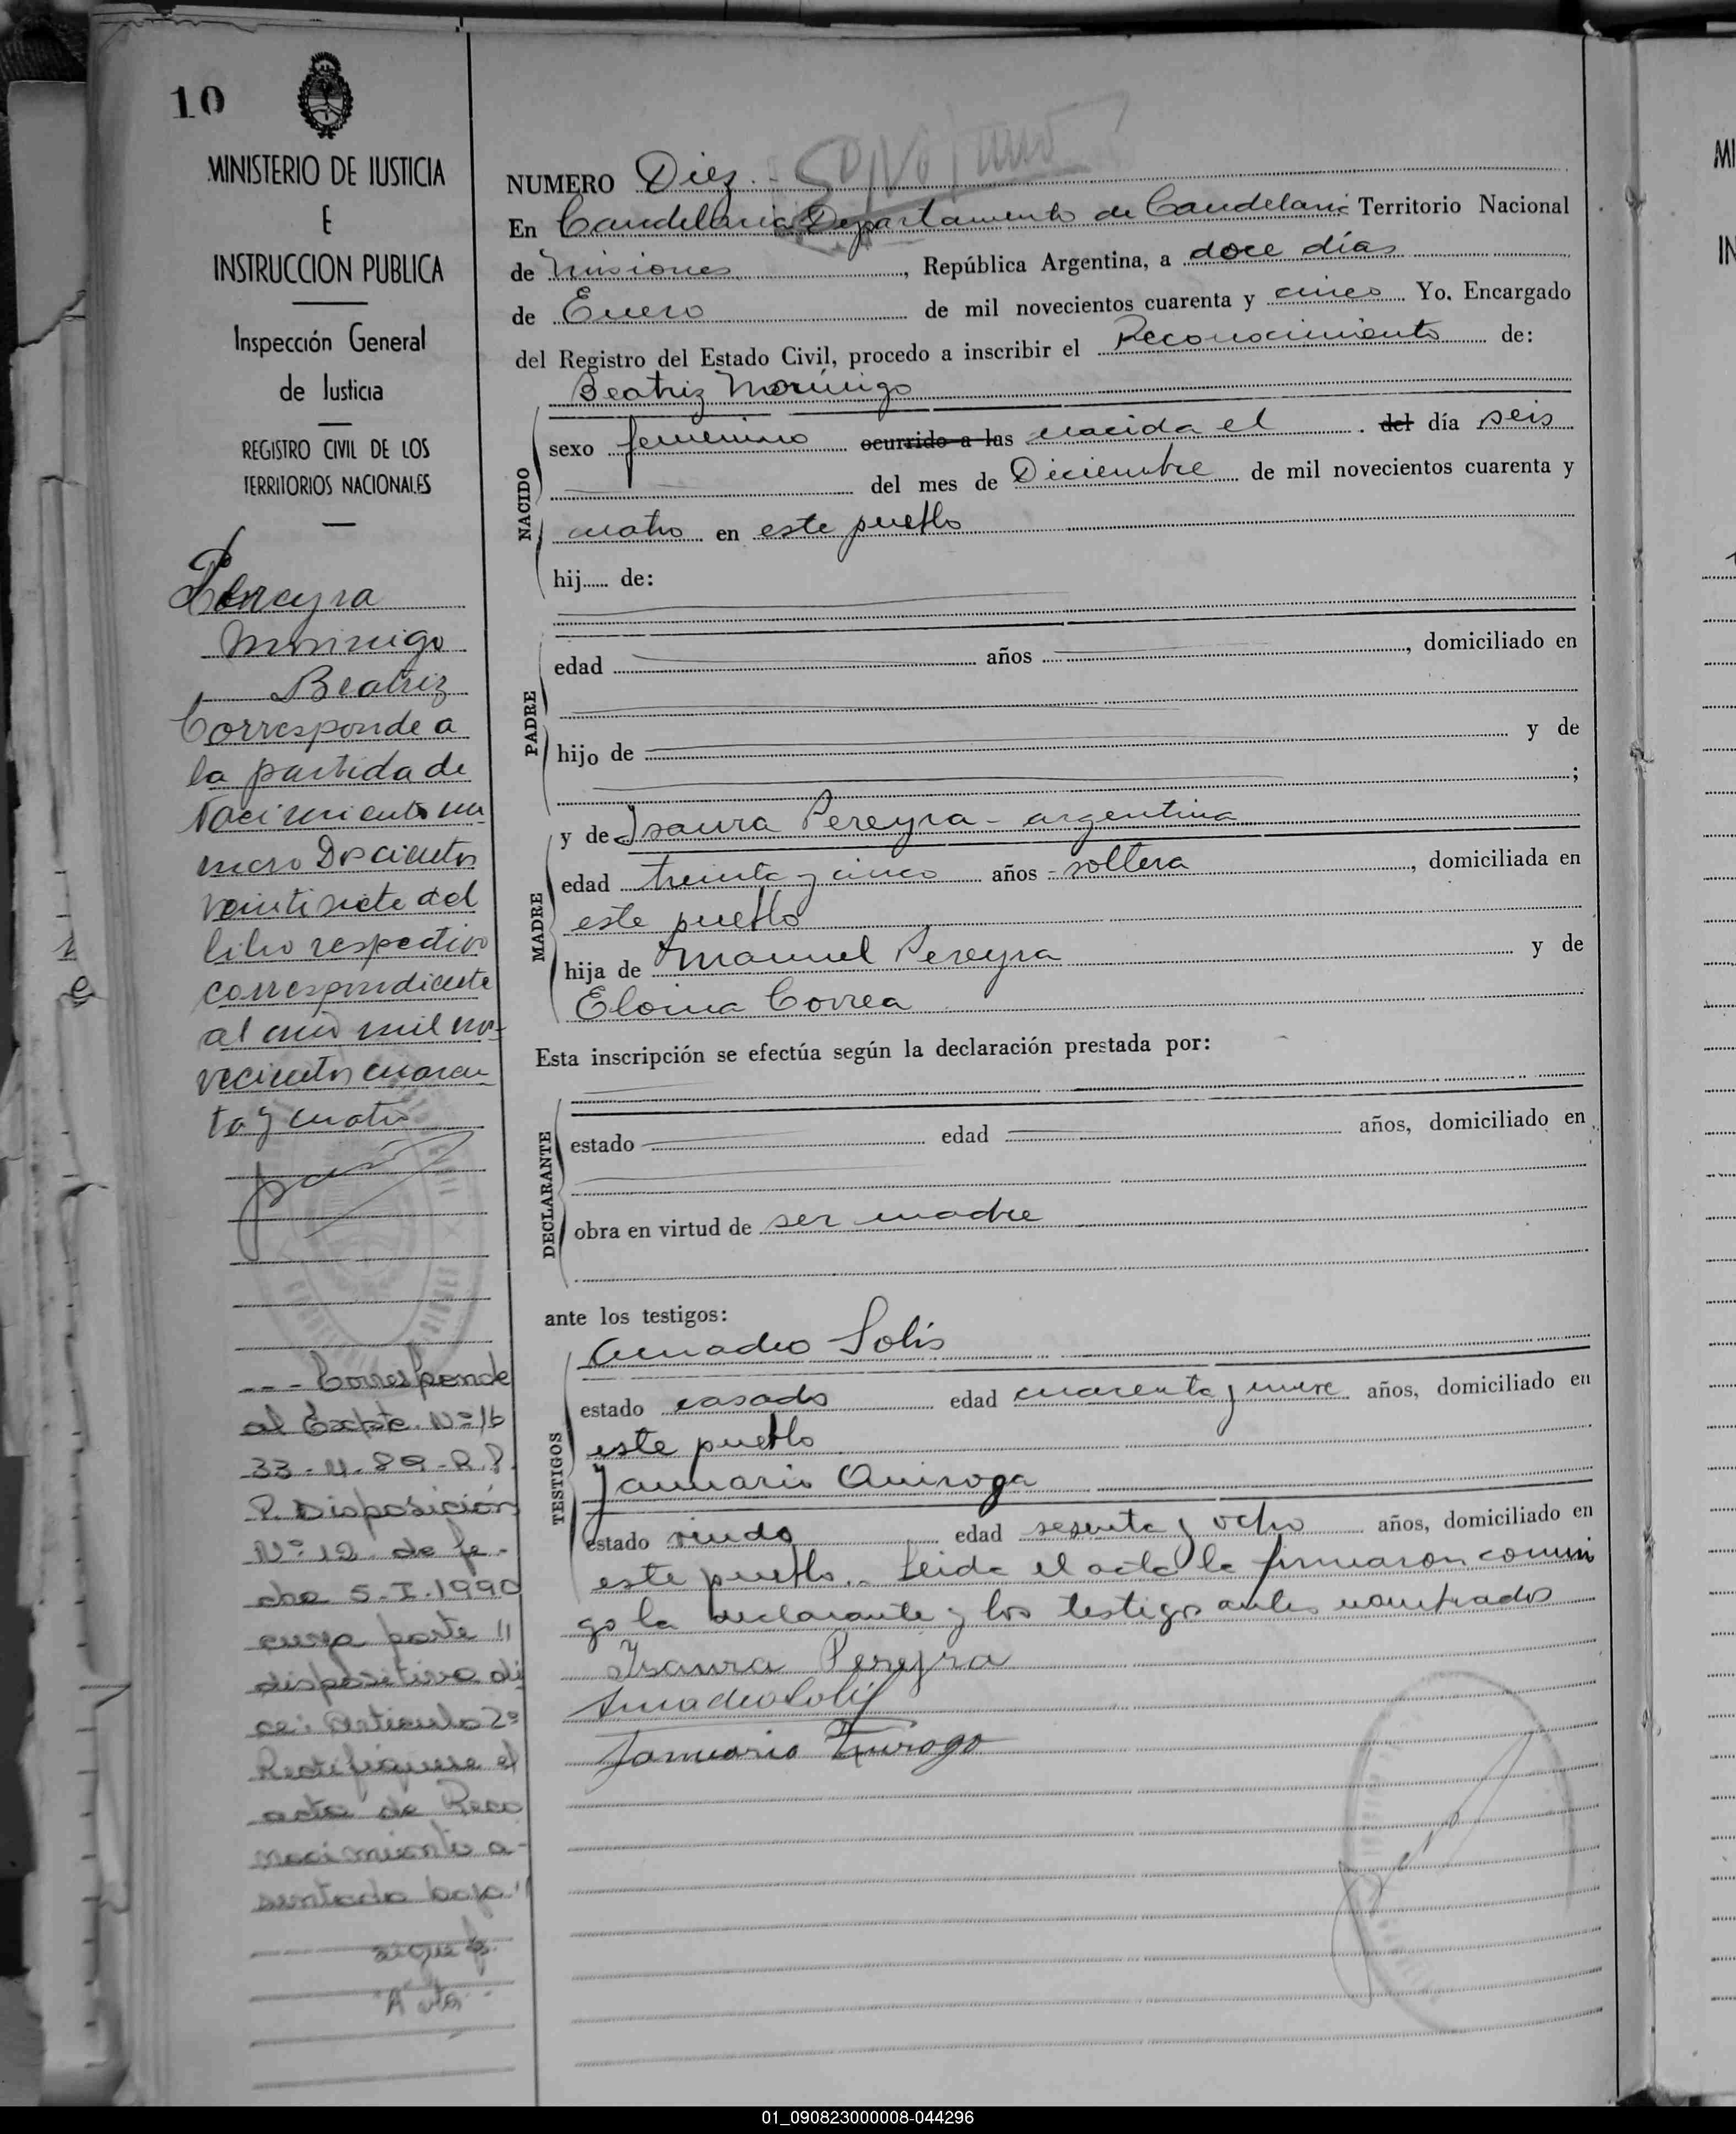 10
MINISTERIO DE JUSTICIA
E
INSTRUCCION PUBLICA
Inspección General
de Justicia
REGISTRO CIVIL DE LOS
TERRITORIOS NACIONALES
Pereyra
Morinigo
Beatriz
Corresponde a
la partida de
Nacimiento nu
mero Doscientos
veintisiete del
libro respectivo
correspondiente
al año mil no-
vecientos cuaren
ta y cuatro
--- Corresponde
al Expte. Nº 16
33-
P. Disposición
Nº 12 de fe-
cha 5-I-1990
cuya parte "
dispositiva di
ce: Artículo 2º
Rectifíquese el
acta de Reco
nocimiento a-
sentada bajo "
sigue
NUMERO Diez.-
En Candelaria Departamento de Candelaria Territorio Nacional
de Misiones, República Argentina, a doce días
de Enero de mil novecientos cuarenta y cinco Yo. Encargado
del Registro del Estado Civil, procedo a inscribir el Reconocimiento de:
Beatriz Morinigo
NACIDO
sexo femenino ocurrido a las nacida el del día seis
del mes de Diciembre de mil novecientos cuarenta y
cuatro en este pueblo
hij...... de:
PADRE
edad años, domiciliado en
hijo de y de
;
MADRE
y de Isaura Pereyra - argentina
edad treinta y cinco años - soltera, domiciliada en
este pueblo
hija de Manuel Pereyra y de
Eloina Correa
Esta inscripción se efectúa según la declaración prestada por:
DECLARANTE
estado edad años, domiciliado en
obra en virtud de ser madre
ante los testigos:
TESTIGOS
Amadeo Solis
estado casado edad cuarenta y nueve años, domiciliado en
este pueblo
Januario Quiroga
estado viudo edad sesenta y ocho años, domiciliado en
este pueblo.- Leida el acta la firmaron conmi
go la declarante y los testigos antes nombrados
Isaura Pereyra
Amadeo Solis
Januario Quiroga
01_090823000008-044296